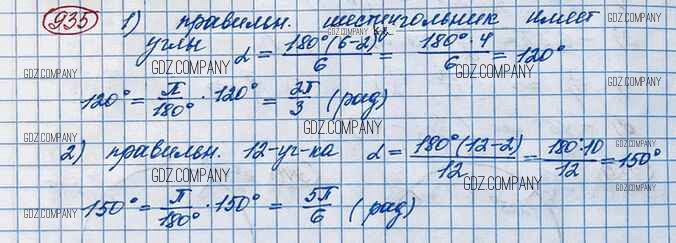 935 1) правильн. шестиугольник имеет
углы α = 180°(6-2)/6 = 180°·4/6 = 120°
120° = π/180° · 120° = 2π/3 (рад)
2) правильн. 12-уг-ка α = 180°(12-2)/12 = 180·10/12 = 150°
150° = π/180° · 150° = 5π/6 (рад)
GDZ.COMPANY
GDZ.COMPANY
GDZ.COMPANY
GDZ.COMPANY
GDZ.COMPANY
GDZ.COMPANY
GDZ.COMPANY
GDZ.COMPANY
GDZ.COMPANY
GDZ.COMPANY
GDZ.COMPANY
GDZ.COMPANY
GDZ.COMPANY
GDZ.COMPANY